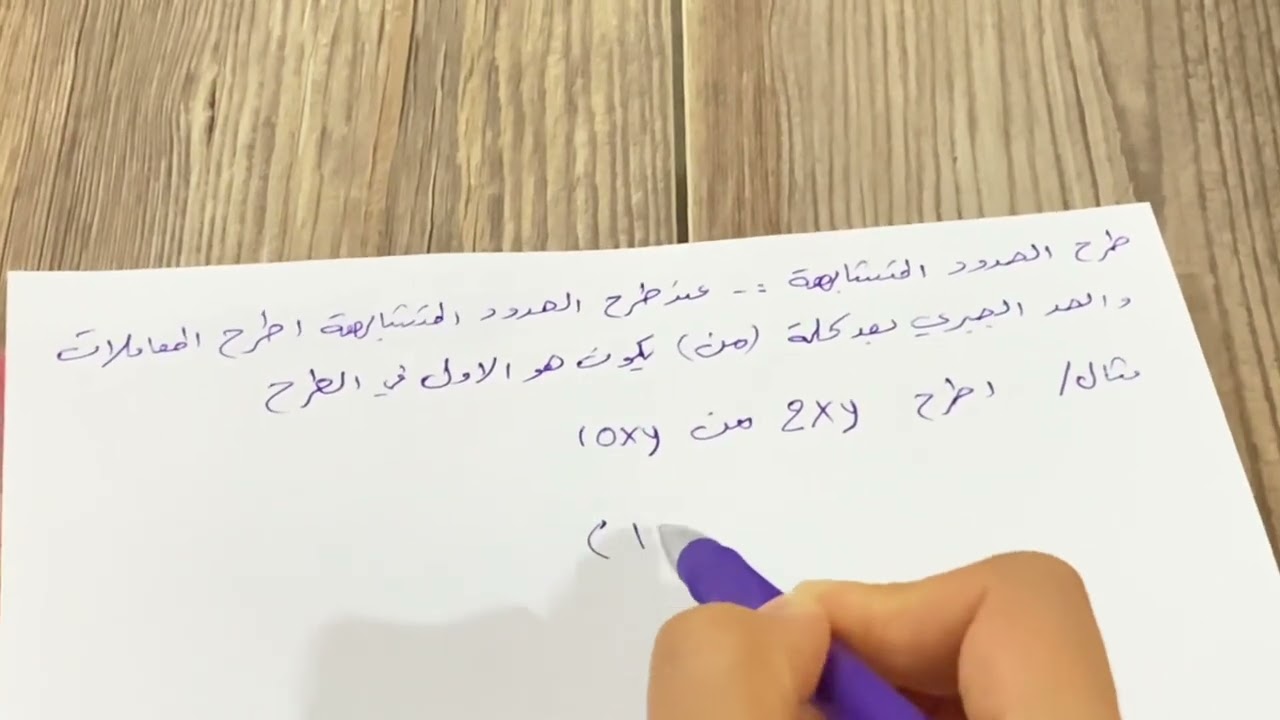 طرح الحدود المتشابهة :- عند طرح الحدود المتشابهة اطرح المعاملات
والحد الجبري بعد كلمة (من) يكون هو الاول في الطرح
مثال/ اطرح 2xy من 10xy